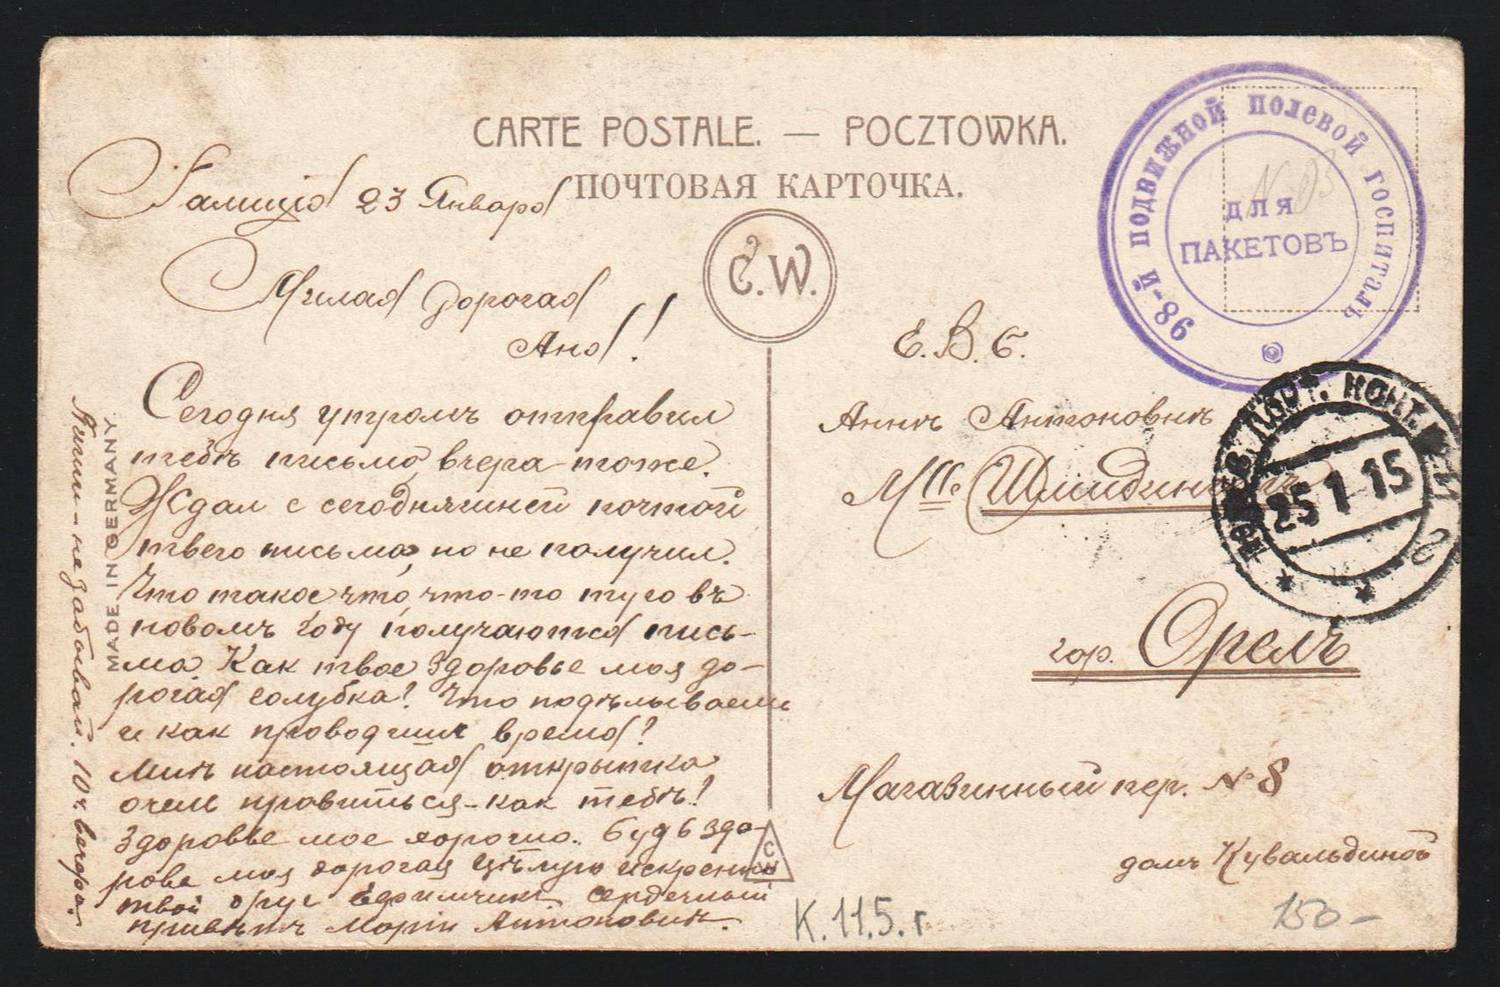 CARTE POSTALE. — POCZTOWKA.
ПОЧТОВАЯ КАРТОЧКА.
C.W.
Галиція 23 Января
Милая дорогая
Аня!
Сегодня утромъ отправил
тебѣ письмо вчера тоже.
Ждал с сегодняшней почтой
твего письма, но не получил.
Что такое что, что-то туго въ
новомъ году получаются пись-
ма. Как твое здоровье моя до-
рогая голубка? Что подѣлываеш
и как проводиш время?
Мнѣ настоящая открытка
очен нравиться-как тебѣ?
Здоровье мое хорошо. Будь здо-
рова моя дорогая Цѣлую искренно
твой друг Ефимчик сердечный
привѣтъ Маріи Антоновнѣ.
Пиши-не забывай. 10 ч. вечера.
MADE IN GERMANY
CW
98-й ПОДВИЖНОЙ ПОЛЕВОЙ ГОСПИТАЛЬ
ДЛЯ
ПАКЕТОВЪ
Е.В.Б.
Аннѣ Антоновнѣ
Mlle
25 1 15
гор. Орелъ
Магазинный пер. № 8
домъ Кувальдиной
К.11.5.г
150-